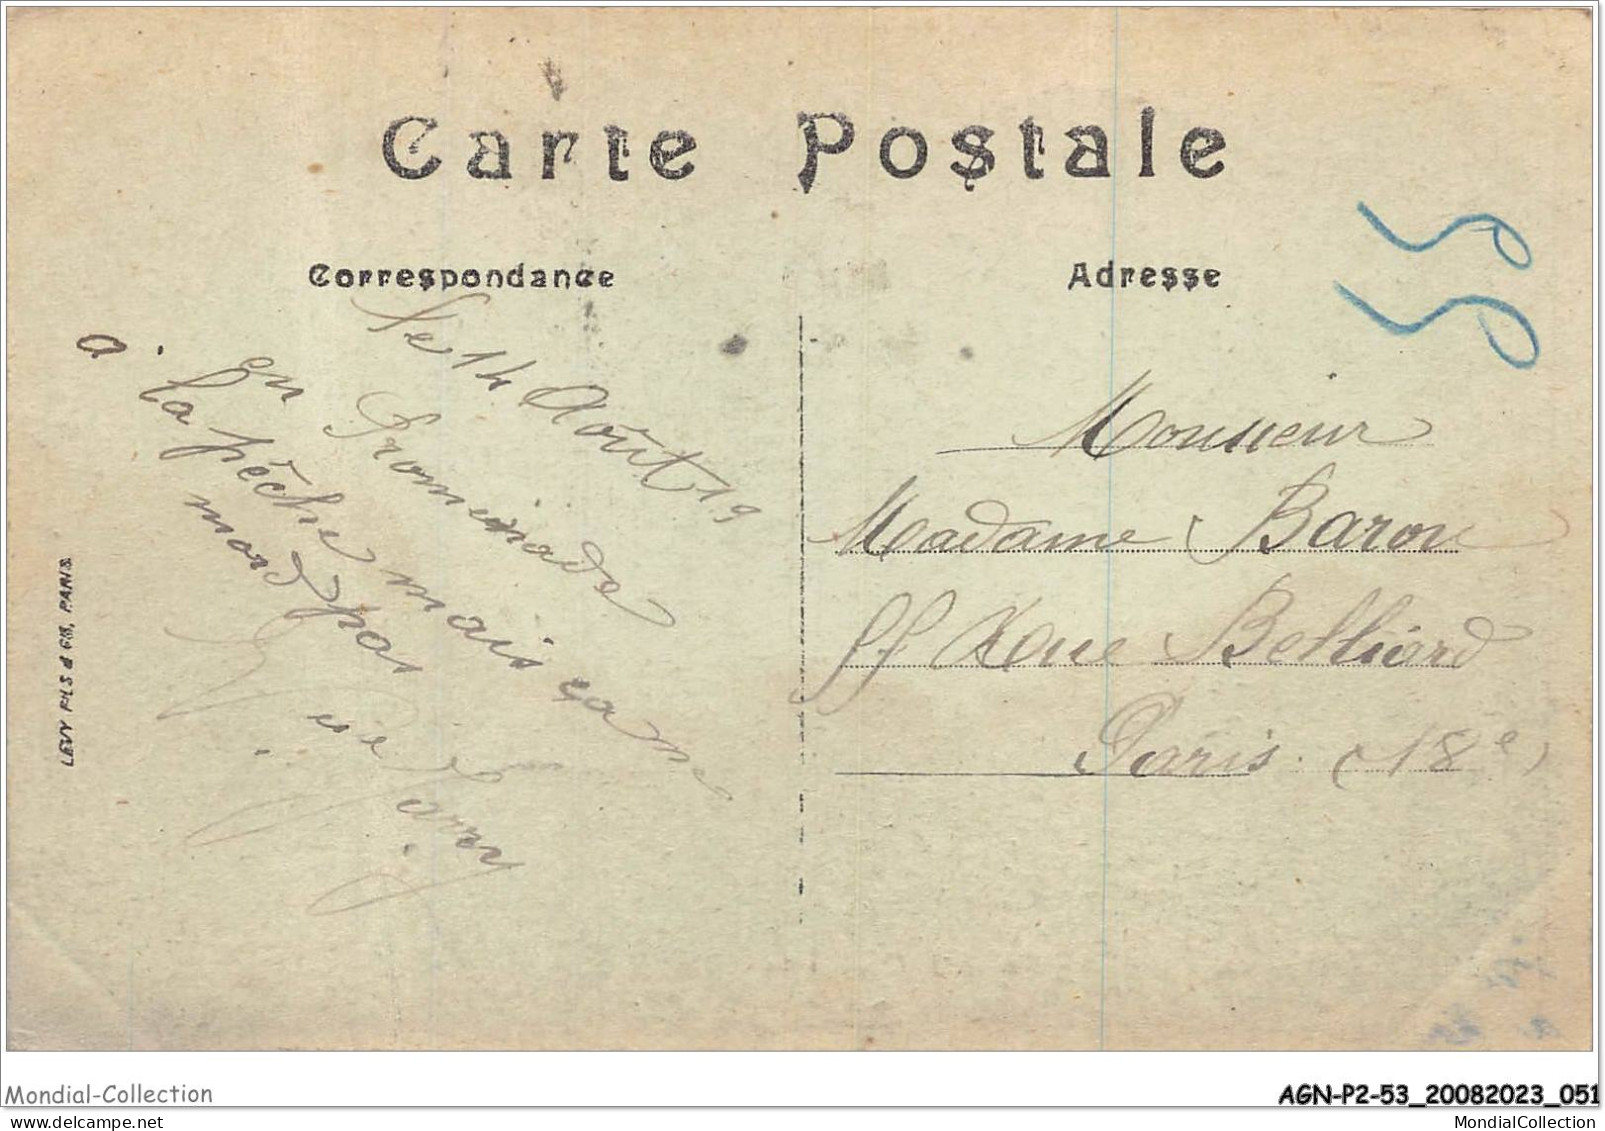 Carte Postale
Correspondance
Adresse
Le 14 Août 19
en Promenade
a
la pêche mais ça n
mord pas
Monsieur
Madame Baron
Rue Belliard
Paris (18e)
LEVY FILS & Cie, PARIS
Mondial-Collection
AGN-P2-53_20082023_051
delcampe.net
MondialCollection